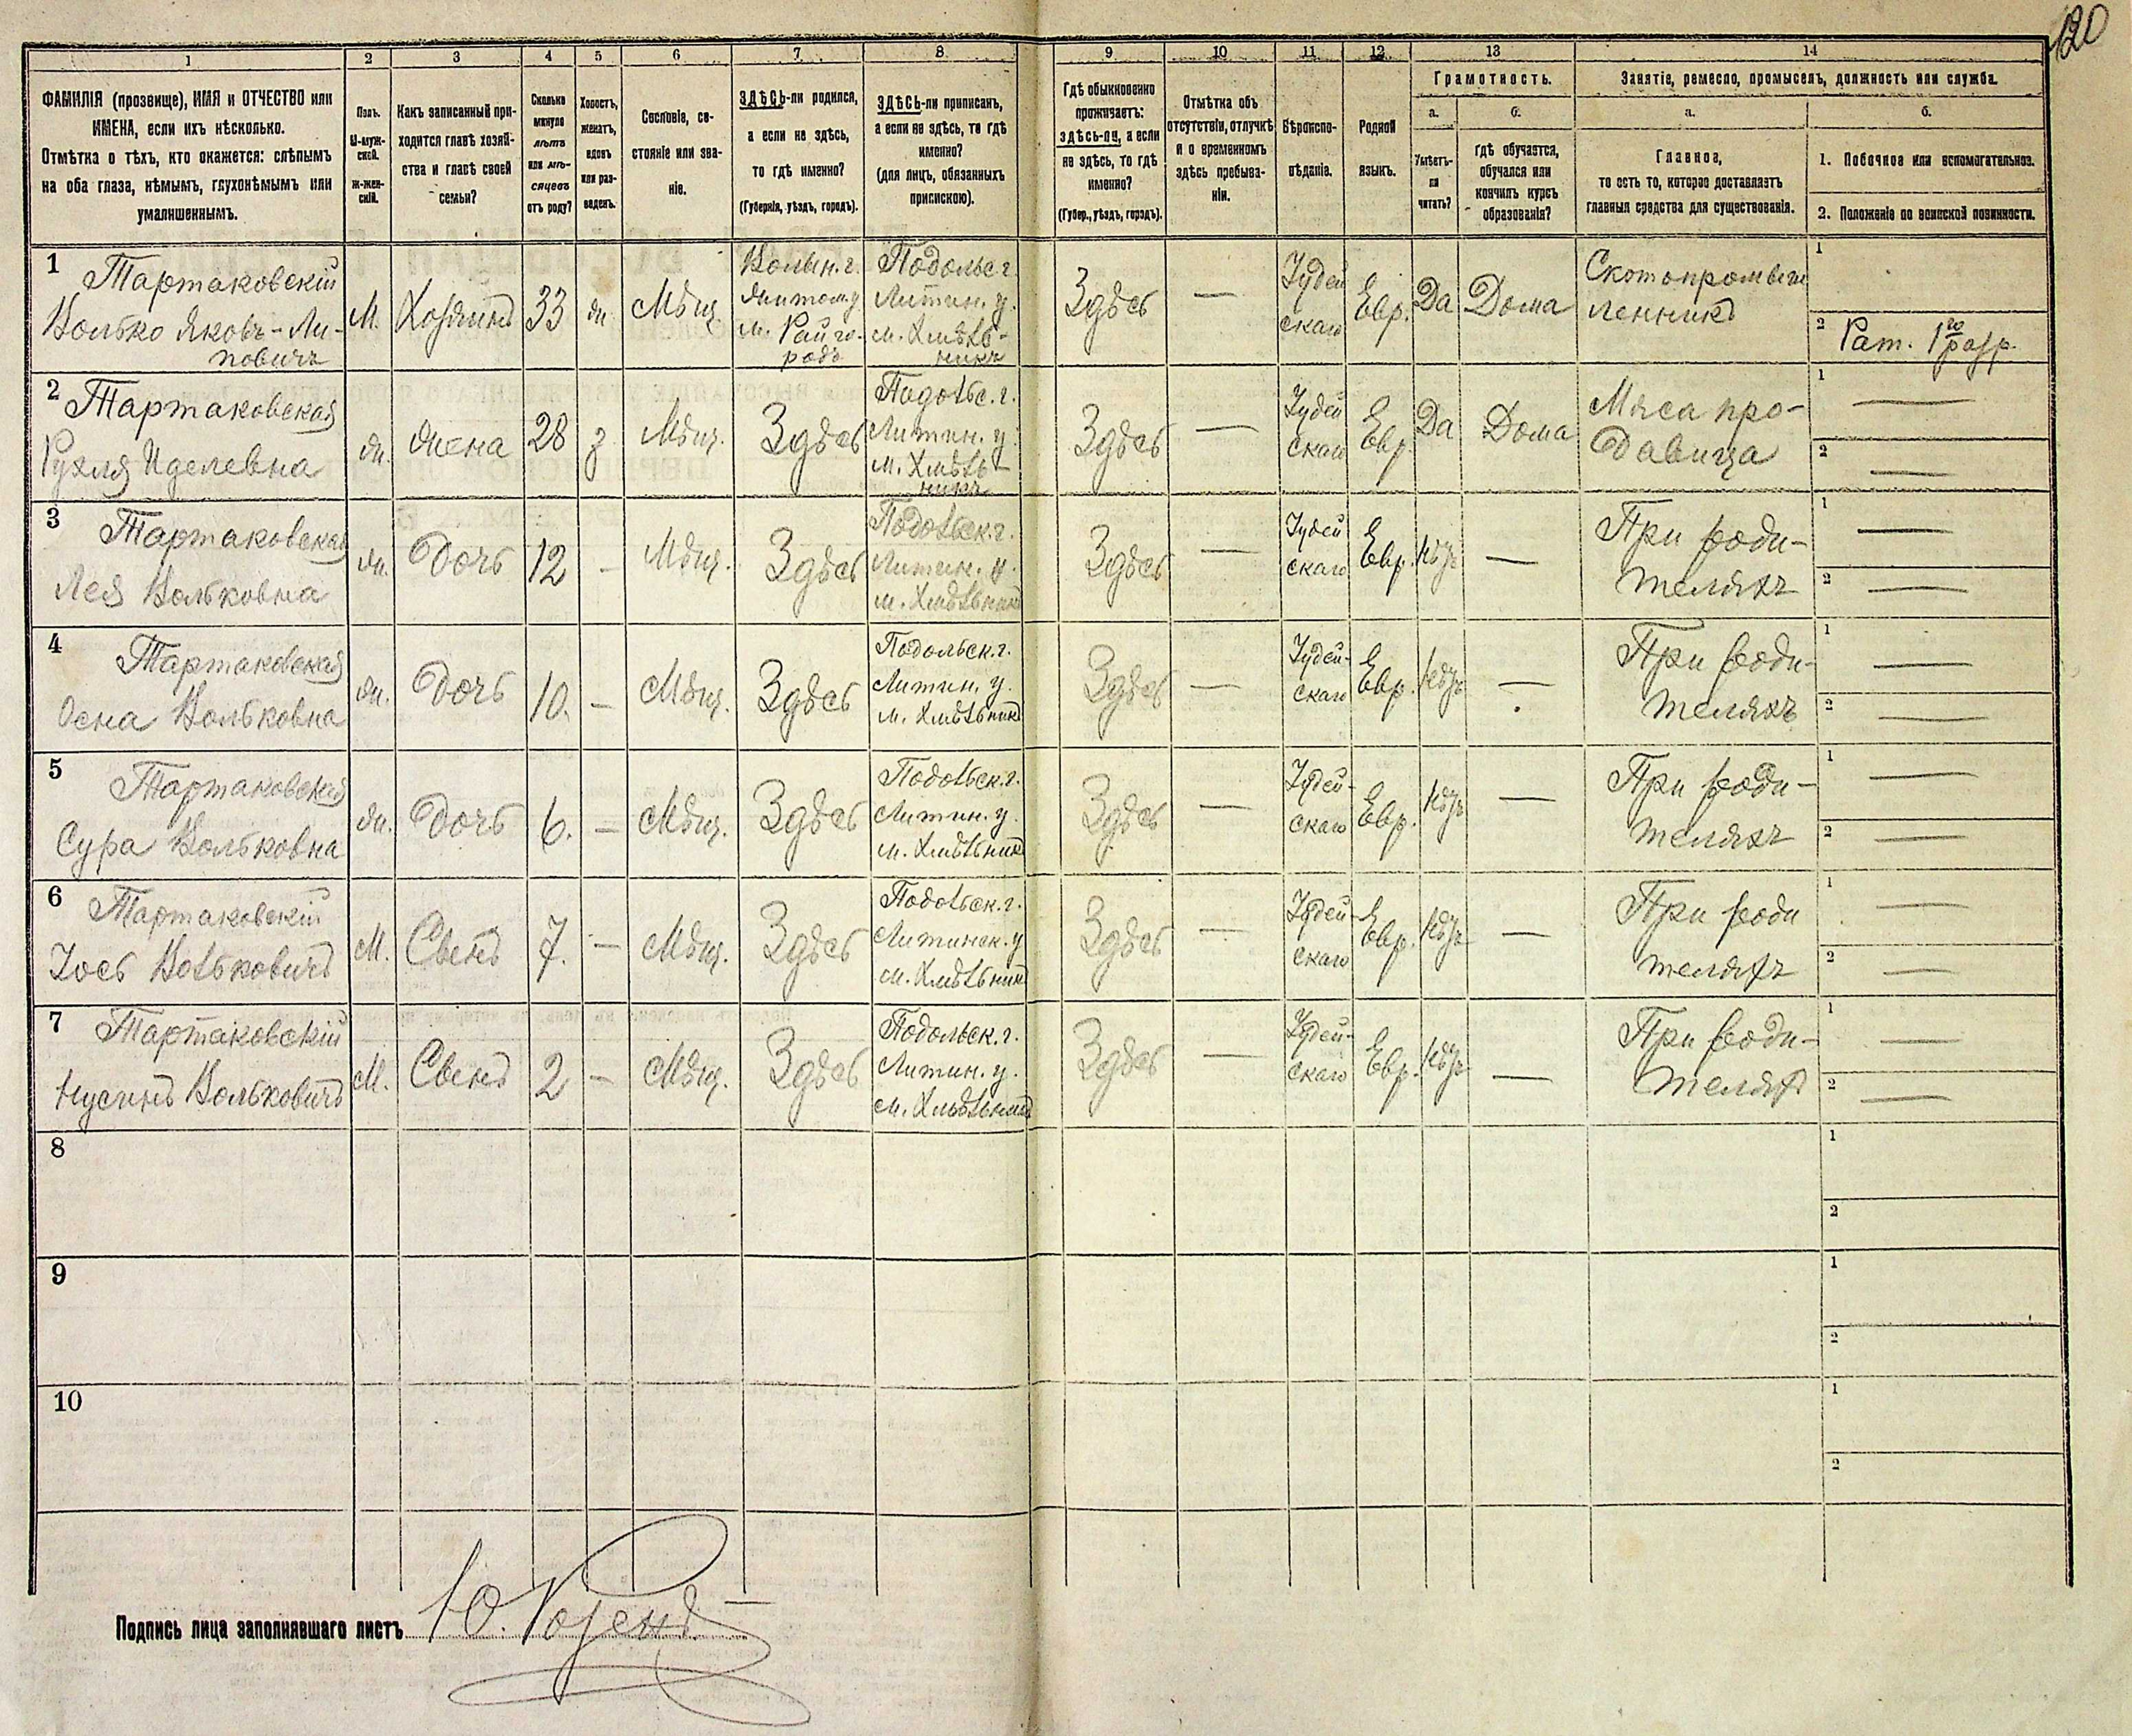 120
1
2
3
4
5
6
7
8
9
10
11
12
13
14
ФАМИЛІЯ (прозвище), ИМЯ и ОТЧЕСТВО или
ИМЕНА, если ихъ нѣсколько.
Отмѣтка о тѣхъ, кто окажется: слѣпымъ
на оба глаза, нѣмымъ, глухонѣмымъ или
умалишеннымъ.
Полъ.
М-муж-
ской.
Ж-жен-
скій.
Какъ записанный при-
ходится главѣ хозяй-
ства и главѣ своей
семьи?
Сколько
минуло
лѣтъ
или мѣ-
сяцевъ
отъ роду?
Холостъ,
женатъ,
вдовъ
или раз-
веденъ.
Сословіе, со-
стояніе или зва-
ніе.
ЗДѢСЬ-ли родился,
а если не здѣсь,
то гдѣ именно?
(Губернія, уѣздъ, городъ).
ЗДѢСЬ-ли приписанъ,
а если не здѣсь, то гдѣ
именно?
(для лицъ, обязанныхъ
припискою).
Гдѣ обыкновенно
проживаетъ:
здѣсь-ли, а если
не здѣсь, то гдѣ
именно?
(Губер., уѣздъ, городъ).
Отмѣтка объ
отсутствіи, отлучкѣ
и о временномъ
здѣсь пребыва-
ніи.
Вѣроиспо-
вѣданіе.
Родной
языкъ.
Грамотность.
а.
Умѣетъ-
ли
читать?
б.
гдѣ обучается,
обучался или
кончилъ курсъ
образованія?
Занятіе, ремесло, промыселъ, должность или служба.
а.
Главное,
то есть то, которое доставляетъ
главныя средства для существованія.
б.
1. Побочное или вспомогательное.
2. Положеніе по воинской повинности.
1
Тартаковскій
Волько Яковъ-Ли-
повичъ
М.
Хозяинъ
33
ж.
Мѣщ.
Волын. г.
Житом. у
м. Райго-
родъ
Подольс. г.
Литин. у.
м. Хмѣль-
никъ
Здѣсь
—
Іудей
скаго
Евр.
Да
Дома
Скотопромыш
ленникъ
1
2 Рат. 1го разр.
2
Тартаковская
Рухля Иделевна
ж.
жена
28
з
Мѣщ.
Здѣсь
Подольс. г.
Литин. у.
м. Хмѣль-
никъ
Здѣсь
—
Іудей
скаго
Евр.
Да
Дома
Мяса про-
давица
1 —
2 —
3
Тартаковская
Лея Вольковна
ж.
Дочь
12
—
Мѣщ.
Здѣсь
Подольск. г.
Литин. у.
м. Хмѣльникъ
Здѣсь
—
Іудей
скаго
Евр.
Нѣтъ
—
При роди-
теляхъ
1 —
2 —
4
Тартаковская
Осна Вольковна
ж.
Дочь
10.
—
Мѣщ.
Здѣсь
Подольск. г.
Литин. у.
м. Хмѣльникъ
Здѣсь
—
Іудей-
скаго
Евр.
Нѣтъ
—
При роди-
теляхъ
1 —
2 —
5
Тартаковская
Сура Вольковна
ж.
Дочь
6.
—
Мѣщ.
Здѣсь
Подольск. г.
Литин. у.
м. Хмѣльникъ
Здѣсь
—
Іудей-
скаго
Евр.
Нѣтъ
—
При роди-
теляхъ
1 —
2 —
6
Тартаковскій
Іось Вольковичъ
М.
Сынъ
7.
—
Мѣщ.
Здѣсь
Подольск. г.
Литинск. у
м. Хмѣльникъ
Здѣсь
—
Іудей-
скаго
Евр.
Нѣтъ
—
При роди
теляхъ
1 —
2 —
7
Тартаковскій
Нусинъ Вольковичъ
М.
Сынъ
2
—
Мѣщ.
Здѣсь
Подольск. г.
Литин. у.
м. Хмѣльникъ
Здѣсь
—
Іудей-
скаго
Евр.
Нѣтъ
—
При роди-
телях
1 —
2 —
8
1
2
9
1
2
10
1
2
Подпись лица заполнявшаго листъ Ю. Розенъ